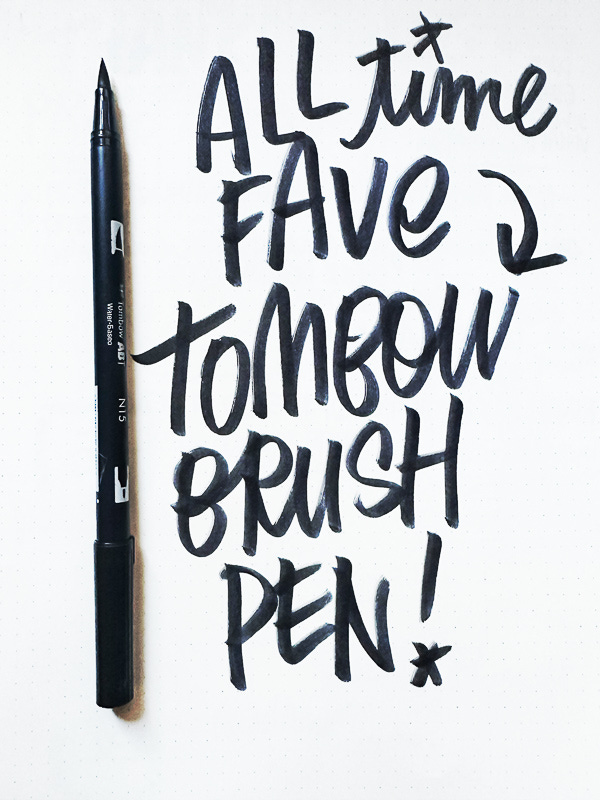 ALL time
FAVE
TOMBOW
BRUSH
PEN!
Tombow ABT
Water-Based
N15